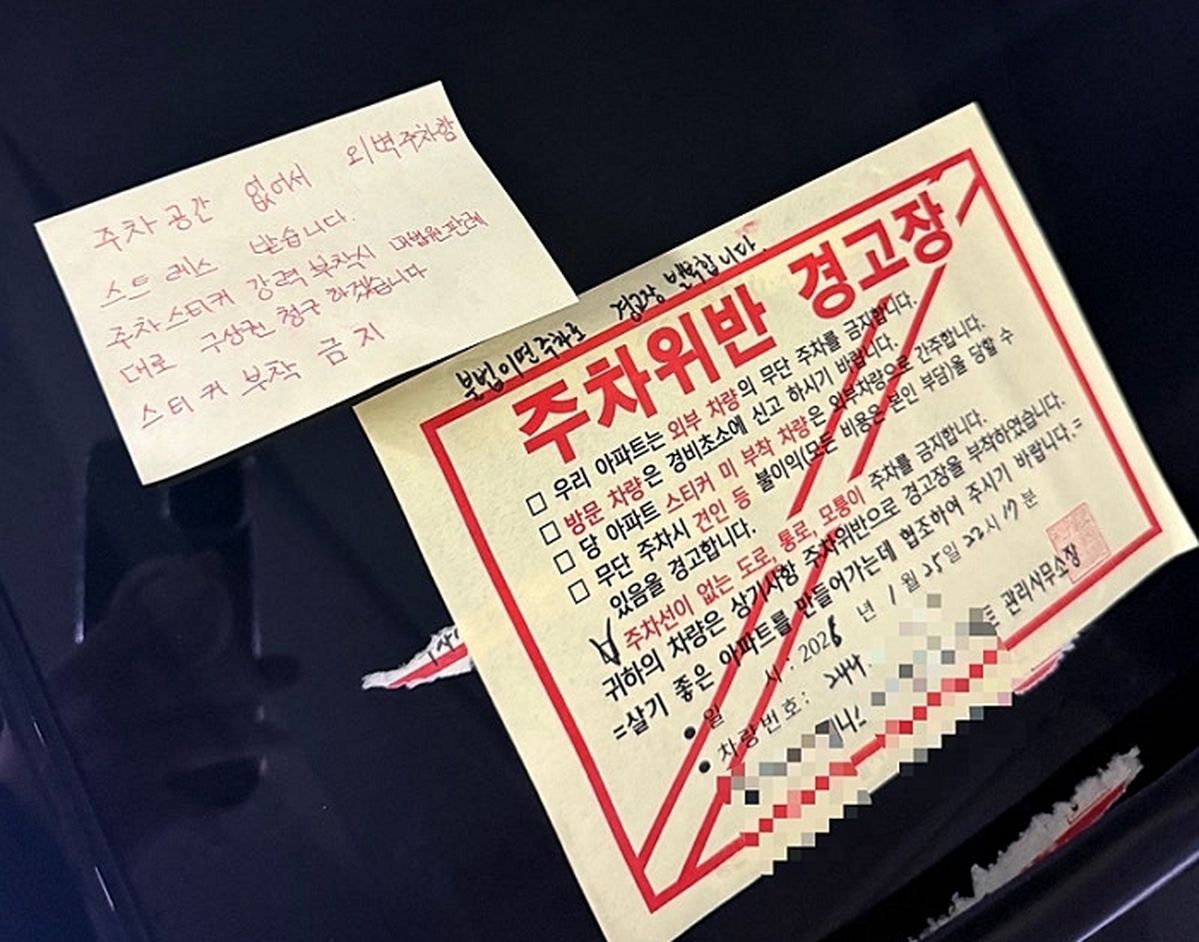 주차공간 없어서 외벽주차함
스트레스 받습니다.
주차스티커 강력 부착시 대법원판례
대로 구상권 청구 하겠습니다
스티커 부착 금지
불법이면주차로 경고장 발부합니다.
주차위반 경고장
□ 우리 아파트는 외부 차량의 무단 주차를 금지합니다.
□ 방문 차량은 경비초소에 신고 하시기 바랍니다.
□ 당 아파트 스티커 미 부착 차량은 외부차량으로 간주합니다.
□ 무단 주차시 견인 등 불이익(모든 비용은 본인 부담)을 당할 수
있음을 경고합니다.
□ 주차선이 없는 도로, 통로, 모퉁이 주차를 금지합니다.
귀하의 차량은 상기사항 주차위반으로 경고장을 부착하였습니다.
=살기 좋은 아파트를 만들어가는데 협조하여 주시기 바랍니다.=
● 일 시 : 202 년 1월 25일 22시 17분
● 차량번호 :
관리사무소장